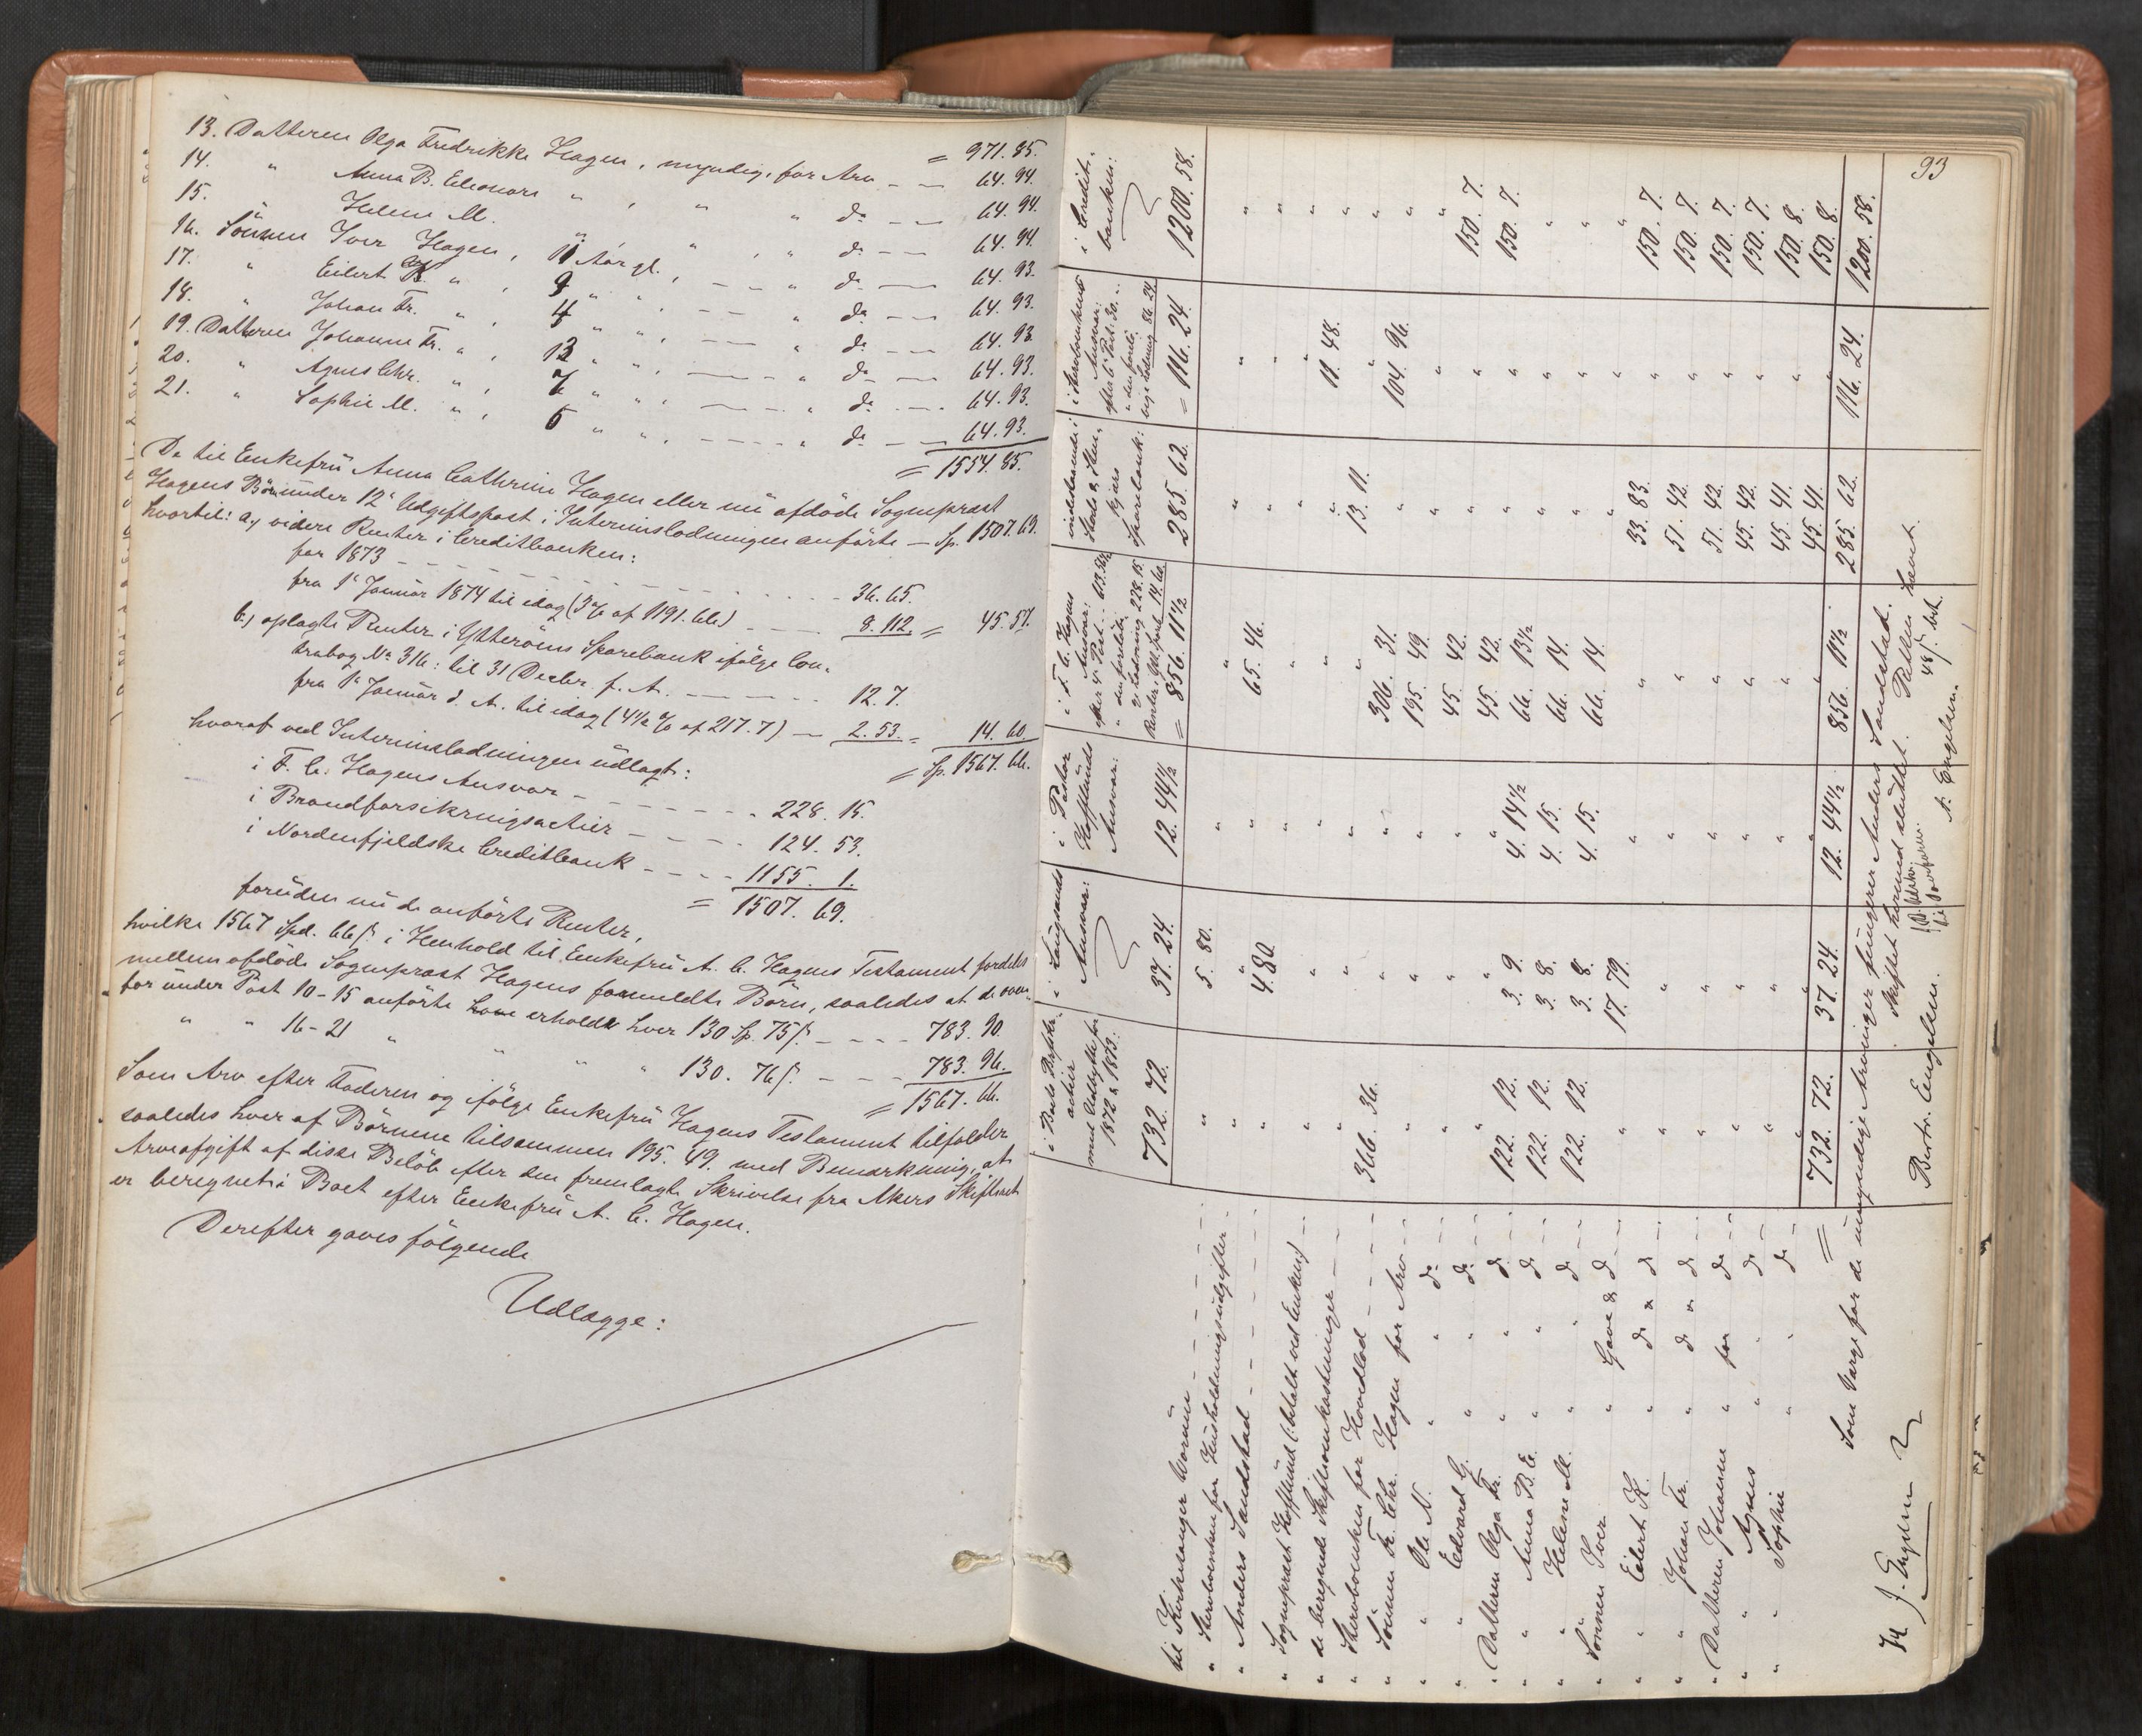 = 971. 85.
13. Datteren Olga Fredrikke Hagen, myndig, for Arv — — 64. 94.
14. " Anna B. Eleonore " , " " do — — 64. 94.
15. " Helene M. " , " " do — — 64. 94.
16. Sönnen Iver Hagen, 11 Aar gl. , — — " do — — 64. 93.
17. " Eilert K. " , 9 " " , — — " do — — 64. 93.
18. " Johan Fr. " , 4 " " , — — " do — — 64. 93.
19. Datteren Johanne Fr. " , 13 " " , — — " do — — 64. 93.
20. " Agnes Chr. " , 7 " " , — — " do — — 64. 93.
21. " Sophie M. " , 6 " " , — — " do — — 64. 93.
= 1554. 85.
De til Enkefrü Anna Cathrine Hagen eller nü afdöde Sognepræst
Hagens Börn ünder 12te Udgiftspost i Interimslodningen anförte — Sp. 1507. 69.
hvortil: a, videre Renter i Creditbanken:
for 1873 — — — 36. 65.
fra 1e Januar 1874 til idag (3 % af 1191. 66.) — 8. 112 = 45. 57.
b, oplagte Renter i Ytteröens Sparebank ifölge Con-
trabog No 316: til 31 Decbr. f. A. — — — 12. 7.
fra 1e Januar d. A. til idag (4 1/2 % af 217. 7) — 2. 53. = 14. 60.
= Sp. 1567. 66.
hvoraf ved Interimslodningen üdlagt:
i F. C. Hagens Ansvar — — — 228. 15.
i Brandforsikringsactier — — — 124. 53.
i Nordenfjeldske Creditbank — — — 1155. 1.
= 1507. 69.
foruden nü de anförte Renter,
hvilke 1567 Spd. 66 ß. i Henhold til Enkefrü A. C. Hagens Testament fordeles
mellem afdöde Sognepræst Hagens formeldte Börn, saaledes at de oven-
for ünder Post 10-15 anförte erholder hver 130 Sp. 75 ß. — — — 783. 90.
" " 16-21 " " " " 130. 76 ß. — — — 783. 96.
= 1567. 66.
Som Arv efter Faderen og ifölge Enkefrü Hagens Testament tilfalder
saaledes hver af Börnene tilsammen 195. 49. med Bemærkning, at
Arveafgift af disse Belöb efter den fremlagte Skrivelse fra Akers Skifteret
er beregnet i Boet efter Enkefrü A. C. Hagen.
Derefter gaves fölgende
Udlægge:
93
i Credit-
banken:
i Sterboenkens
Ansvar:
indestaaende i
Sparebank:
i F. C. Hagens
Ansvar:
i Pastor
Hofflünds
Ansvar:
i Langsands
Ansvar:
med Udbytte for
1872 & 1873:
732. 72. 37. 24. 12. 44 1/2 = 856. 11 1/2 285. 62. = 116. 24. 1200. 58.
til Kirkesanger — — — " 5. 80. " " " " "
" Sterboenken for Husholdningsudgifter " " " 65. 46. " " "
" Anders Sandstad — — — " 4. 80. " " " " "
" Sognepræst Hofflünd (betalt ved Enken) — " " " " " " "
" de beregnede Skifteomkostninger — — " " " " 13. 11. 11. 48. "
" Sterboenken for Hovedlod — — — 366. 36. " " 306. 31. " 104. 96. "
" Sönnen Fr. Chr. Hagen for Arv — — " " " 195. 49. " " "
" " Ole N. " " do — — " " " 45. 42. " " 150. 7.
" " Edvard G. " " do — — " " " 45. 42. " " 150. 7.
" Datteren Olga Fr. " " do — — 122. 12. 3. 9. 4. 14 1/2 66. 13 1/2 " " "
" " Anna B. E. " " do — — 122. 12. 3. 8. 4. 15. 66. 14. " " "
" " Helene M. " " do — — 122. 12. 3. 8. 4. 15. 66. 14. " " "
" Sönnen Iver " Gave & do — — " 17. 79. " " 33. 83. " 150. 7.
" " Eilert K. " do & do — — " " " " 51. 42. " 150. 7.
" " Johan Fr. " do & do — — " " " " 51. 42. " 150. 7.
" Datteren Johanne " for do — — " " " " 45. 42. " 150. 7.
" " Agnes " " do — — " " " " 45. 41. " 150. 8.
" " Sophie " " do — — " " " " 45. 41. " 150. 8.
= 732. 72. 37. 24. 12. 44 1/2. 856. 11 1/2. 285. 62. 116. 24. 1200. 58.
Som Værge for de ümyndige Arvinger füngerer Anders Sandstad.
Skiftet hermed slüttet. Retten hævet.
J. Engelsen Bertr. Engelsen. A. Engelsen.